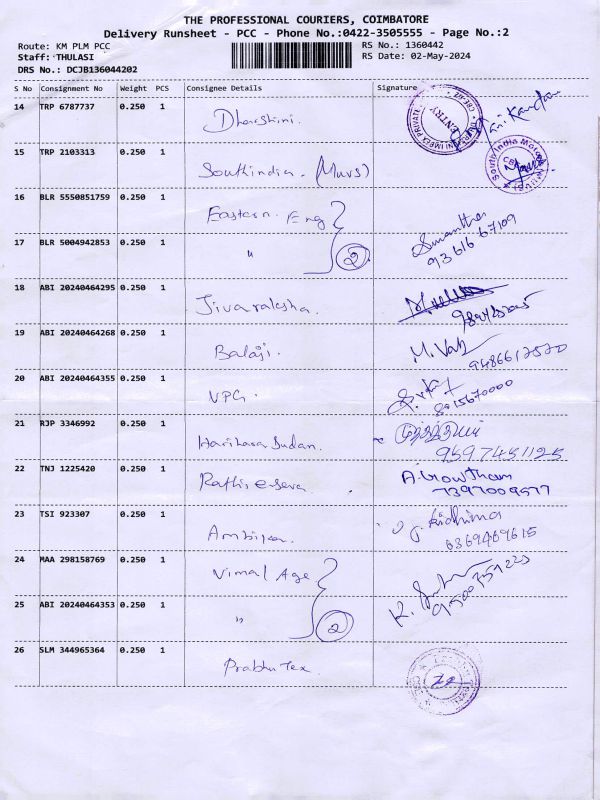 THE PROFESSIONAL COURIERS, COIMBATORE
Delivery Runsheet - PCC - Phone No.:0422-3505555 - Page No.:2
Route: KM PLM PCC
RS No.: 1360442
Staff: THULASI
RS Date: 02-May-2024
DRS No.: DCJB136044202
S No Consignment No Weight PCS Consignee Details Signature
14 TRP 6787737 0.250 1 Dharshini. ENTRY
15 TRP 2103313 0.250 1 Southindia. (Muvs) South India
16 BLR 5550851759 0.250 1 Eastern. Eng
17 BLR 5004942853 0.250 1 " 2
18 ABI 20240464295 0.250 1 Jivaraksha.
19 ABI 20240464268 0.250 1 Balaji.
20 ABI 20240464355 0.250 1 VPG. 8915670000
21 RJP 3346992 0.250 1 Hariharasudan.
22 TNJ 1225420 0.250 1 A. Gowtham
7397009577
23 TSI 923307 0.250 1 Ambika.
6369469615
24 MAA 298158769 0.250 1 Vimal Age
25 ABI 20240464353 0.250 1 " 2
26 SLM 344965364 0.250 1 Prabhu Tex.